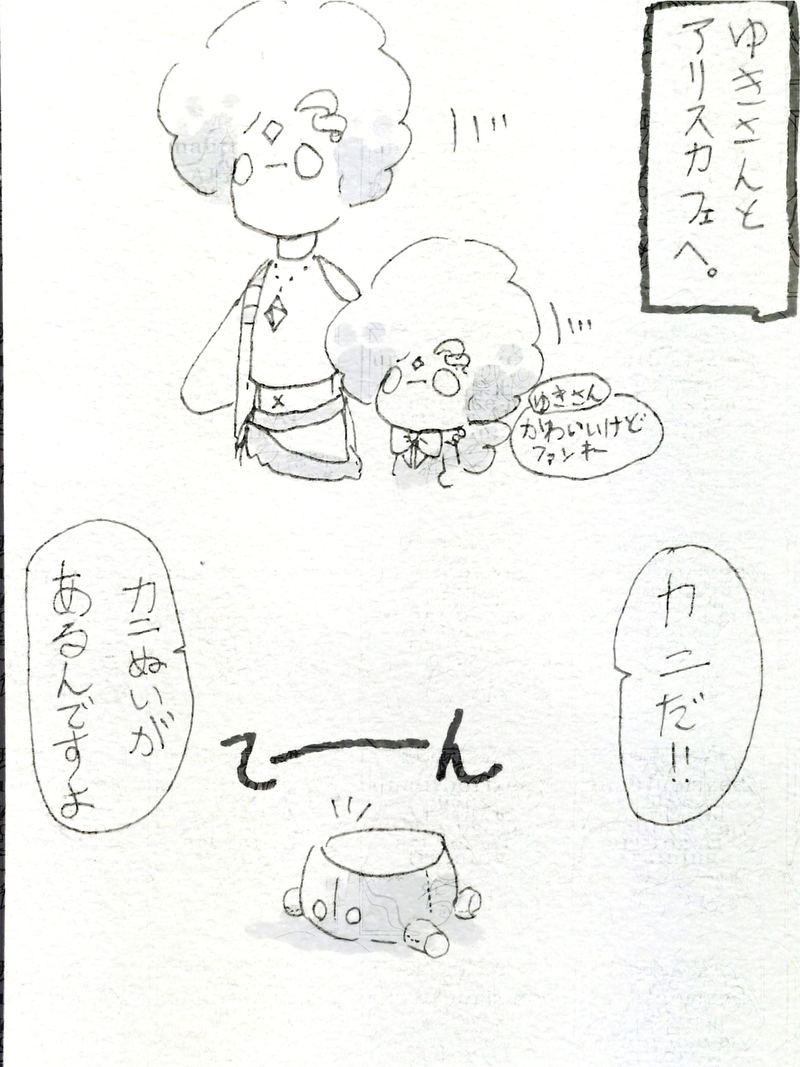 ゆきさんと
アリスカフェへ。
ゆきさん
かわいいけど
ファンキー
カニだ!!
てーーん
カニぬいが
あるんですよ